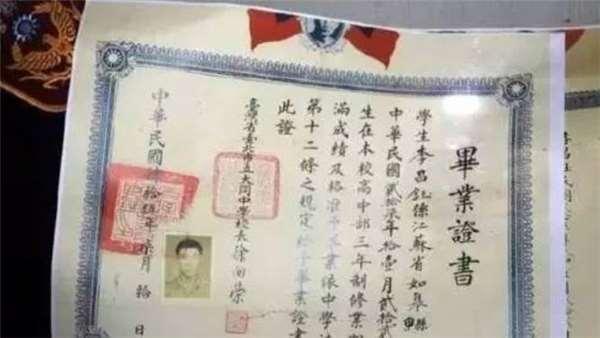 畢業證書
學生李昌鈺係江蘇省如皋縣
中華民國貳拾柒年拾壹月貳拾貳
生在本校高中部三年制修業
滿成績及格准予畢業依中學法
第十二條之規定給予畢業證書
此證
臺灣省臺北市立大同中學校長徐向榮
中華民國拾伍年柒月拾日